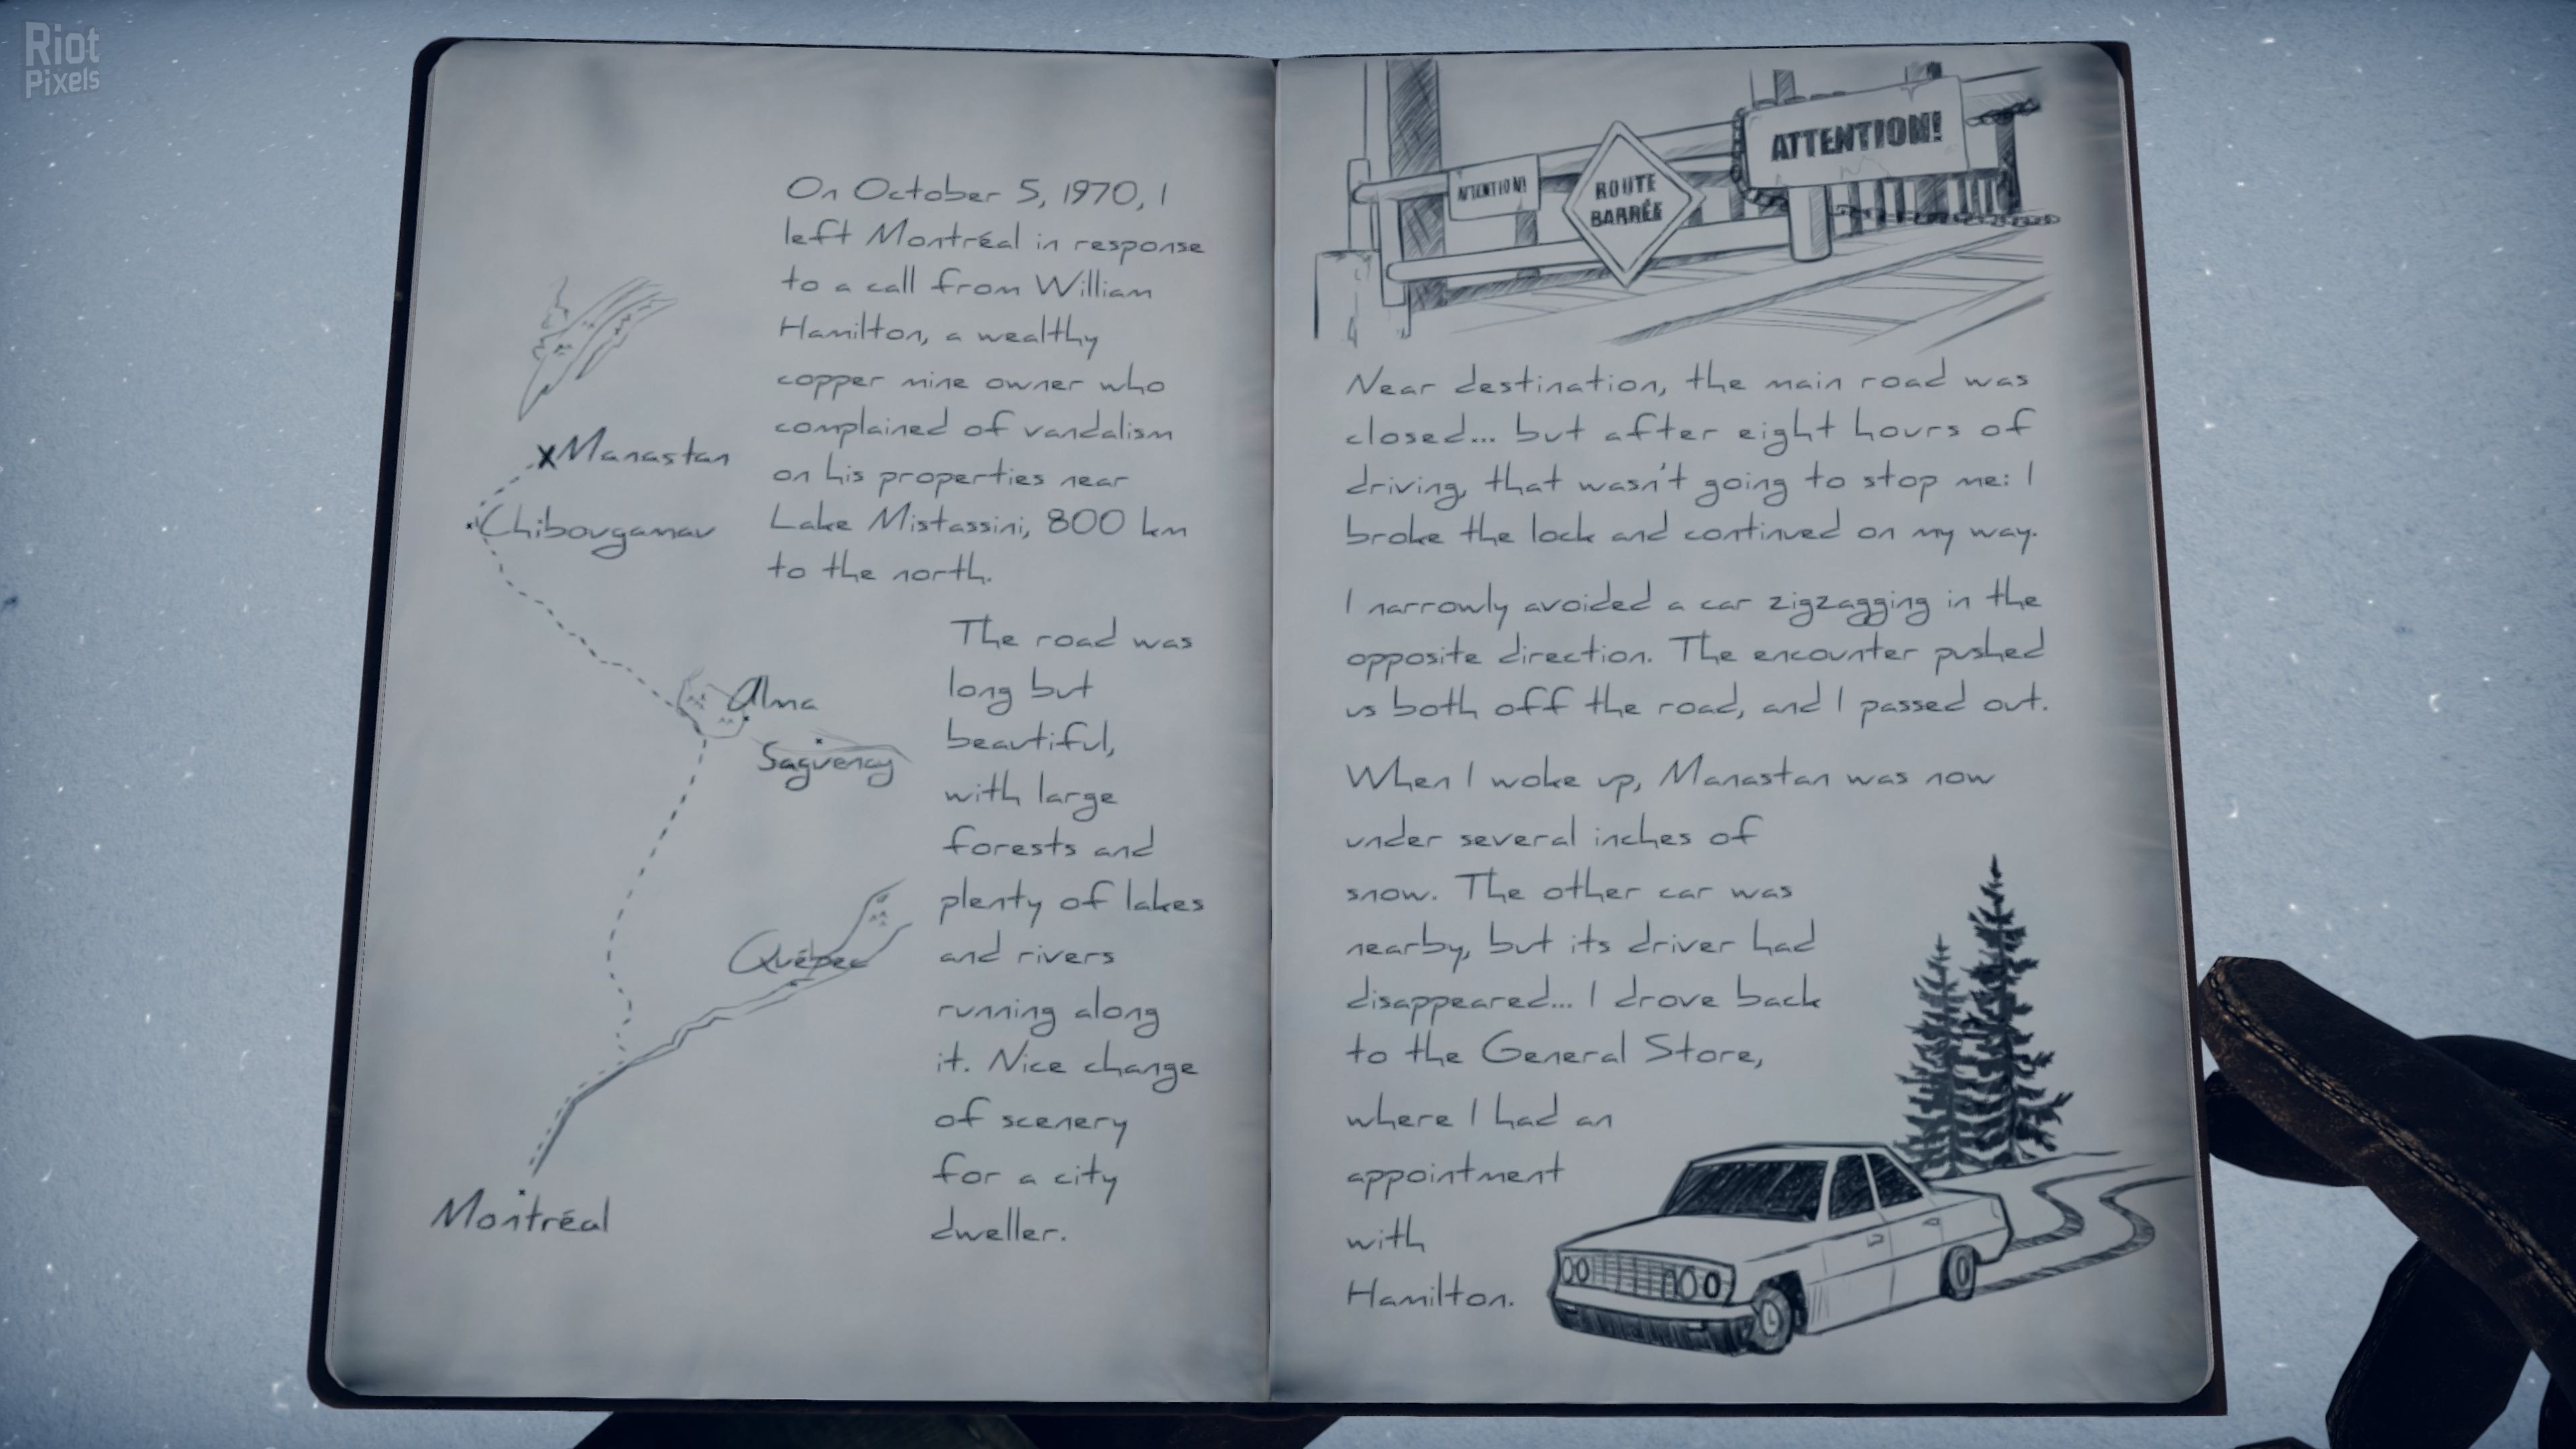 Riot
Pixels
On October 5, 1970, I
left Montréal in response
to a call from William
Hamilton, a wealthy
copper mine owner who
complained of vandalism
on his properties near
Lake Mistassini, 800 km
to the north.
xManastan
Chibougamau
Alma
Saguenay
Québec
Montréal
The road was
long but
beautiful,
with large
forests and
plenty of lakes
and rivers
running along
it. Nice change
of scenery
for a city
dweller.
ATTENTION!
ROUTE
BARRÉE
ATTENTION!
Near destination, the main road was
closed... but after eight hours of
driving, that wasn't going to stop me: I
broke the lock and continued on my way.
I narrowly avoided a car zigzagging in the
opposite direction. The encounter pushed
us both off the road, and I passed out.
When I woke up, Manastan was now
under several inches of
snow. The other car was
nearby, but its driver had
disappeared... I drove back
to the General Store,
where I had an
appointment
with
Hamilton.